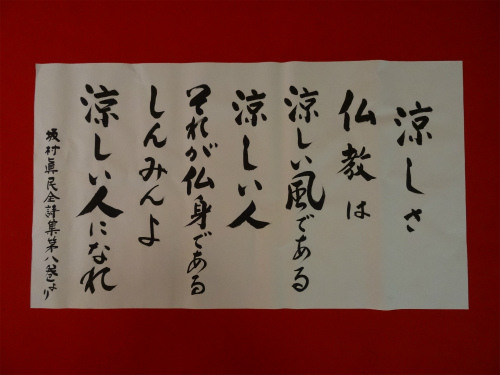 涼しさ
仏教は
涼しい風である
涼しい人
それが仏身である
しんみんよ
涼しい人になれ
坂村真民全詩集第八巻より